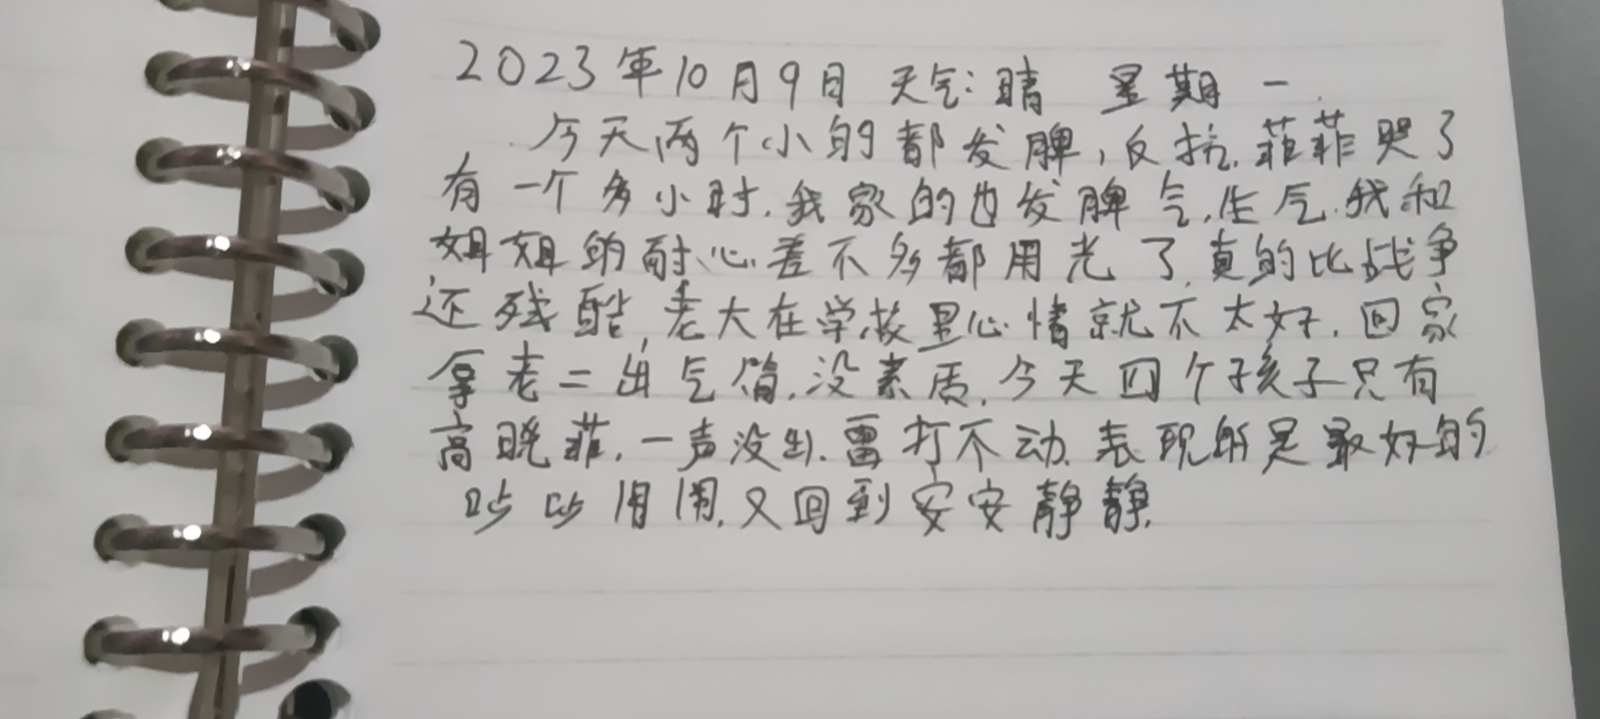 2023年10月9日 天气:晴 星期一.
今天两个小的都发脾,反抗.菲菲哭了
有一个多小时.我家的也发脾气.生气.我和
姐姐的耐心差不多都用光了.真的比战争
还残酷,老大在学校里心情就不太好.回家
拿老二出气筒.没素质.今天四个孩子只有
高晓菲.一声没出.雷打不动.表现的是最好的
吵吵闹闹.又回到安安静静.